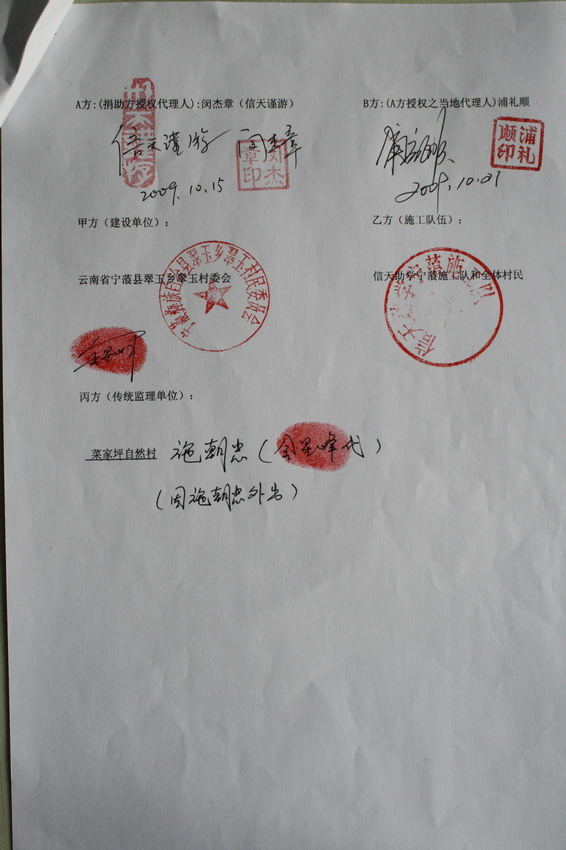 A方:(捐助方授权代理人):闵杰章（信天谨游）
B方:(A方授权之当地代理人)浦礼顺
信天谨游 闵杰章
闵杰章印
浦礼顺印
2009.10.15
2009.10.21
甲方（建设单位）：
乙方（施工队伍）：
云南省宁蒗县翠玉乡翠玉村委会
信天助学宁蒗施工队和全体村民
宁蒗彝族自治县翠玉乡翠玉村民委员会
信天助学宁蒗施工队
丙方（传统监理单位）：
菜家坪自然村 施朝忠（金星峰代）
（因施朝忠外出）